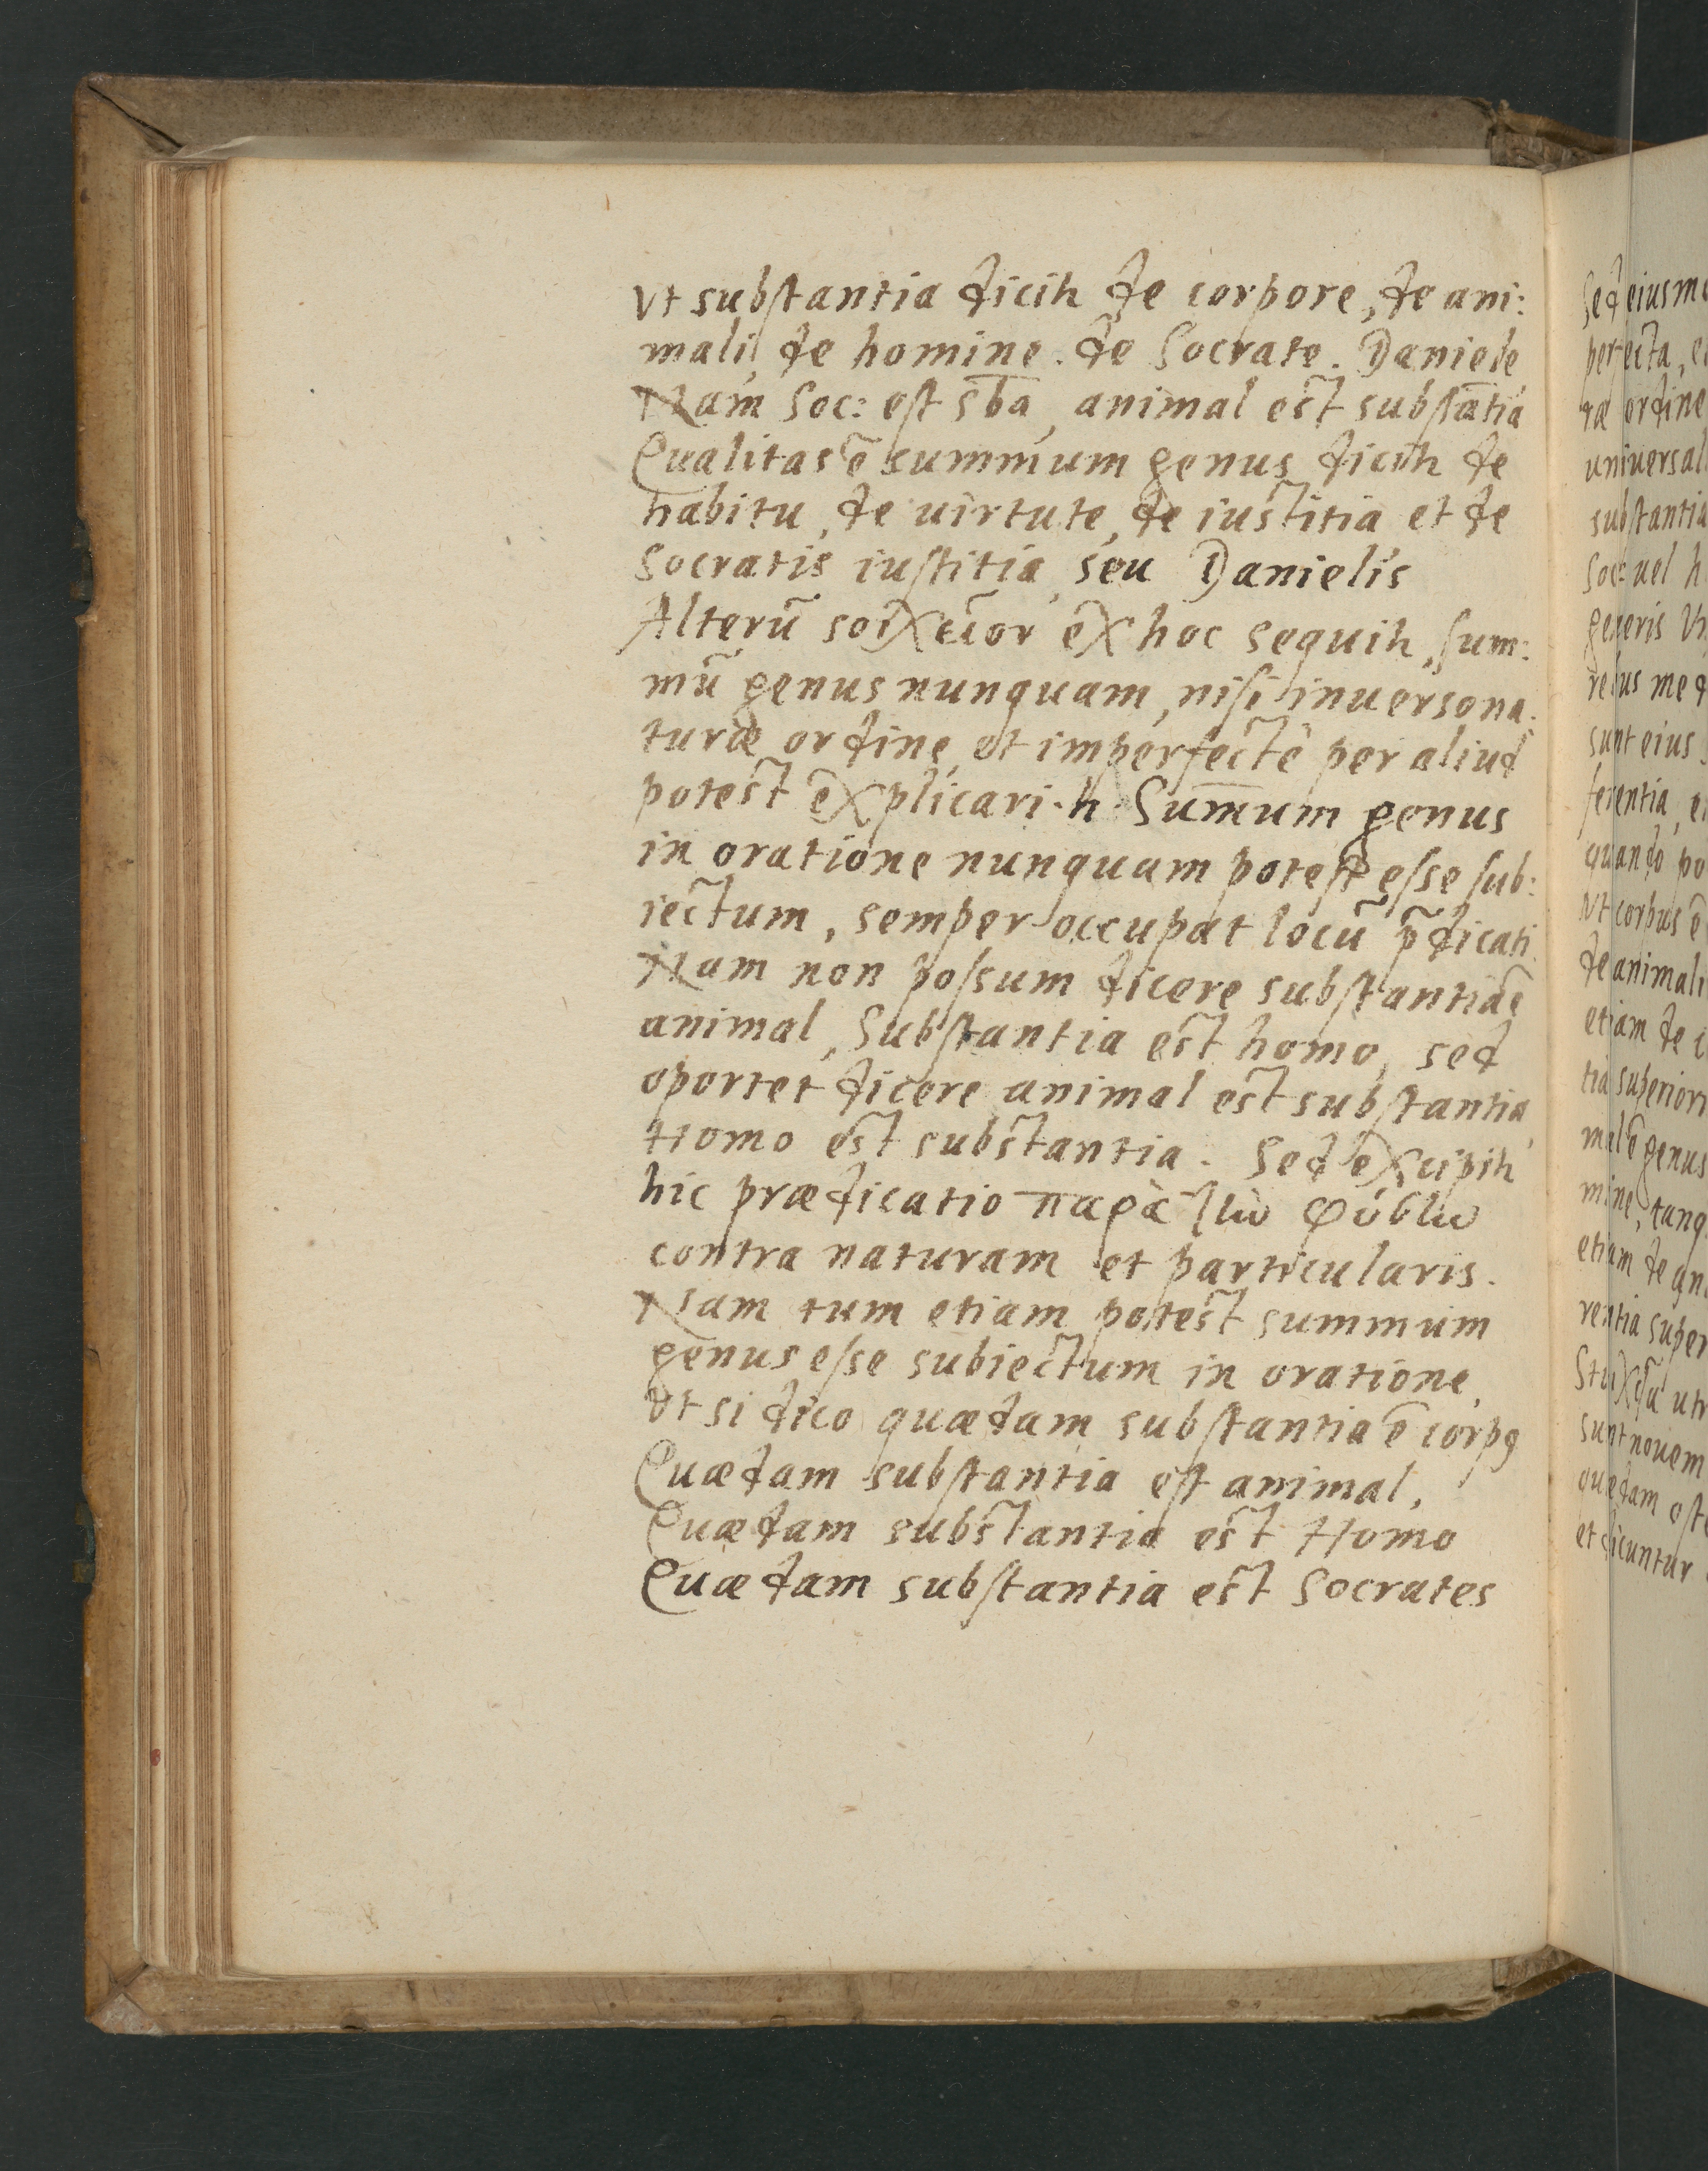 Vt substantia dicitr de corpore, de ani:
mali, de homine. de Socrate. Daniele
Nam Soc: est sb̄a, animal est substātia
Qualitas ē summum genus dicitr de
habitu, de uirtute, de iustitia et de
Socratis iustitia, seu Danielis
Alterū ex hoc sequitr, sum:
mū genus nunquam, nisi inuerso na:
turæ ordine, et imperfecte per aliud
potest explicari. h. Sum̄um genus
in oratione nunquam potest esse sub:
iectum, semper occupat locū p̄dicati
Nam non possum dicere substantia ē
animal, Substantia est homo, sed
oportet dicere animal est substantia,
Homo est substantia. Sed excipitr
hic prædicatio παρὰ
contra naturam et particularis.
Nam tum etiam potest summum
genus esse subiectum in oratione,
Vt si dico quædam substantia ē corpꝰ
Quædam substantia est animal,
Quædam substantia est Homo
Quædam substantia est Socrates
Sed eiusm
perfecta, e
ræ ordine
uniuersal
substantia
Soc: uel h
generis V
rebus med
sunt eius
ferentia, e
quando po
Vt corpus ē
de animali
etiam de
tia superiori
mal ē genus
mine, tanq
etiam de an
rentia super
sunt nouem
quædam est
et dicuntur